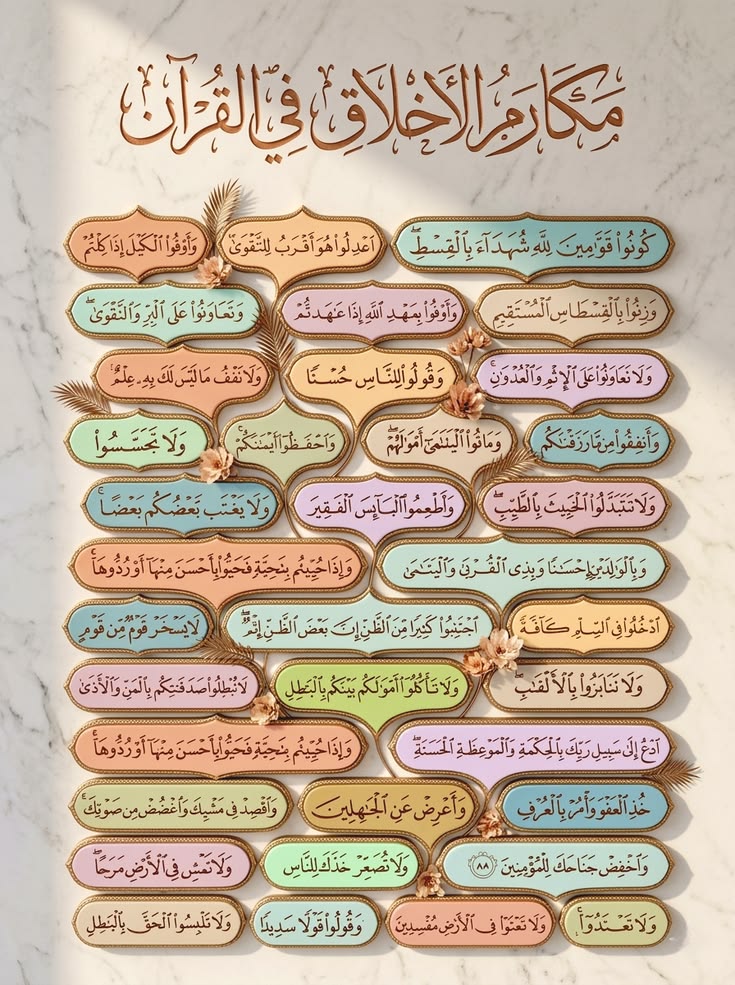 مَكَارِمُ الأَخْلَاقِ فِي القُرْآنِ
كُونُوا۟ قَوَّٰمِينَ لِلَّهِ شُهَدَآءَ بِٱلْقِسْطِ
ٱعْدِلُوا۟ هُوَ أَقْرَبُ لِلتَّقْوَىٰ
وَأَوْفُوا۟ ٱلْكَيْلَ إِذَا كِلْتُمْ
وَزِنُوا۟ بِٱلْقِسْطَاسِ ٱلْمُسْتَقِيمِ
وَأَوْفُوا۟ بِعَهْدِ ٱللَّهِ إِذَا عَٰهَدتُّمْ
وَتَعَاوَنُوا۟ عَلَى ٱلْبِرِّ وَٱلتَّقْوَىٰ
وَلَا تَعَاوَنُوا۟ عَلَى ٱلْإِثْمِ وَٱلْعُدْوَٰنِ
وَقُولُوا۟ لِلنَّاسِ حُسْنًا
وَلَا تَقْفُ مَا لَيْسَ لَكَ بِهِۦ عِلْمٌ
وَأَنفِقُوا۟ مِن مَّا رَزَقْنَٰكُم
وَءَاتُوا۟ ٱلْيَتَٰمَىٰٓ أَمْوَٰلَهُمْ
وَٱحْفَظُوٓا۟ أَيْمَٰنَكُمْ
وَلَا تَجَسَّسُوا۟
وَلَا تَتَبَدَّلُوا۟ ٱلْخَبِيثَ بِٱلطَّيِّبِ
وَأَطْعِمُوا۟ ٱلْبَآئِسَ ٱلْفَقِيرَ
وَلَا يَغْتَب بَّعْضُكُم بَعْضًا
وَبِٱلْوَٰلِدَيْنِ إِحْسَٰنًا وَبِذِى ٱلْقُرْبَىٰ وَٱلْيَتَٰمَىٰ
وَإِذَا حُيِّيتُم بِتَحِيَّةٍ فَحَيُّوا۟ بِأَحْسَنَ مِنْهَآ أَوْ رُدُّوهَآ
ٱدْخُلُوا۟ فِى ٱلسِّلْمِ كَآفَّةً
ٱجْتَنِبُوا۟ كَثِيرًا مِّنَ ٱلظَّنِّ إِنَّ بَعْضَ ٱلظَّنِّ إِثْمٌ
لَا يَسْخَرْ قَوْمٌ مِّن قَوْمٍ
وَلَا تَنَابَزُوا۟ بِٱلْأَلْقَٰبِ
وَلَا تَأْكُلُوٓا۟ أَمْوَٰلَكُم بَيْنَكُم بِٱلْبَٰطِلِ
لَا تُبْطِلُوا۟ صَدَقَٰتِكُم بِٱلْمَنِّ وَٱلْأَذَىٰ
ٱدْعُ إِلَىٰ سَبِيلِ رَبِّكَ بِٱلْحِكْمَةِ وَٱلْمَوْعِظَةِ ٱلْحَسَنَةِ
وَإِذَا حُيِّيتُم بِتَحِيَّةٍ فَحَيُّوا۟ بِأَحْسَنَ مِنْهَآ أَوْ رُدُّوهَآ
خُذِ ٱلْعَفْوَ وَأْمُرْ بِٱلْعُرْفِ
وَأَعْرِضْ عَنِ ٱلْجَٰهِلِينَ
وَٱقْصِدْ فِى مَشْيِكَ وَٱغْضُضْ مِن صَوْتِكَ
وَٱخْفِضْ جَنَاحَكَ لِلْمُؤْمِنِينَ ٨٨
وَلَا تُصَعِّرْ خَدَّكَ لِلنَّاسِ
وَلَا تَمْشِ فِى ٱلْأَرْضِ مَرَحًا
وَلَا تَعْتَدُوٓا۟
وَلَا تَعْثَوْا۟ فِى ٱلْأَرْضِ مُفْسِدِينَ
وَقُولُوا۟ قَوْلًا سَدِيدًا
وَلَا تَلْبِسُوا۟ ٱلْحَقَّ بِٱلْبَٰطِلِ